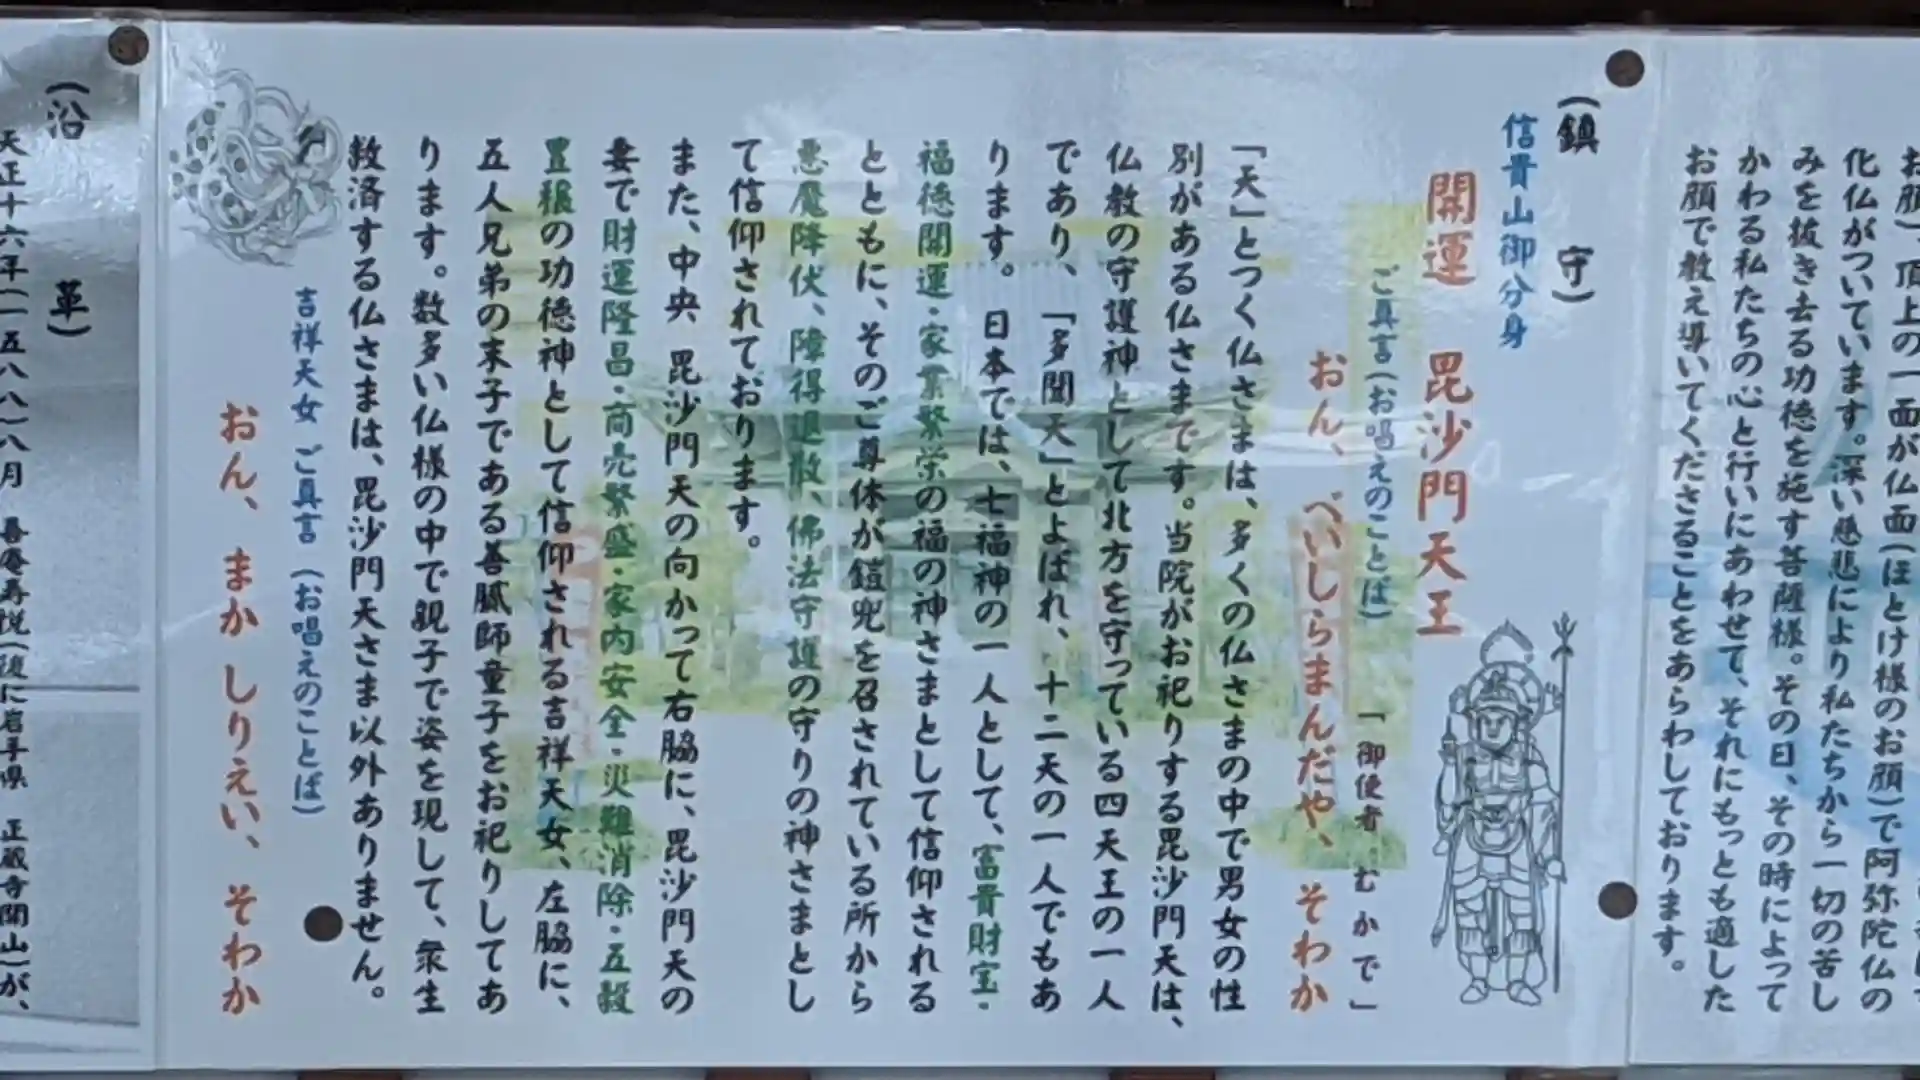 お顔)、頂上の一面が仏面(ほとけ様のお顔)で阿弥陀仏の
化仏がついています。深い慈悲により私たちから一切の苦し
みを抜き去る功徳を施す菩薩様。その日、その時によって
かわる私たちの心と行いにあわせて、それにもっとも適した
お顔で教え導いてくださることをあらわしております。
(鎮 守)
信貴山御分身
開運 毘沙門天王
ご真言(お唱えのことば)
「御使者 むかで」
おん、べいしらまんだや、そわか
「天」とつく仏さまは、多くの仏さまの中で男女の性
別がある仏さまです。当院がお祀りする毘沙門天は、
仏教の守護神として北方を守っている四天王の一人
であり、「多聞天」とよばれ、十二天の一人でもあ
ります。日本では、七福神の一人として、富貴財宝・
福徳開運・家業繁栄の福の神さまとして信仰される
とともに、そのご尊体が鎧兜を召されている所から
悪魔降伏、障得退散、佛法守護の守りの神さまとし
て信仰されております。
また、中央、毘沙門天の向かって右脇に、毘沙門天の
妻で財運隆昌・商売繁盛・家内安全・災難消除・五穀
豊穣の功徳神として信仰される吉祥天女、左脇に、
五人兄弟の末子である善膩師童子をお祀りしてあ
ります。数多い仏様の中で親子で姿を現して、衆生
救済する仏さまは、毘沙門天さま以外ありません。
吉祥天女 ご真言 (お唱えのことば)
おん、まか しりえい、そわか
(沿 革)
天正十六年(一五八八)八月 善庵寿悦(後に岩手県 正蔵寺開山)が、